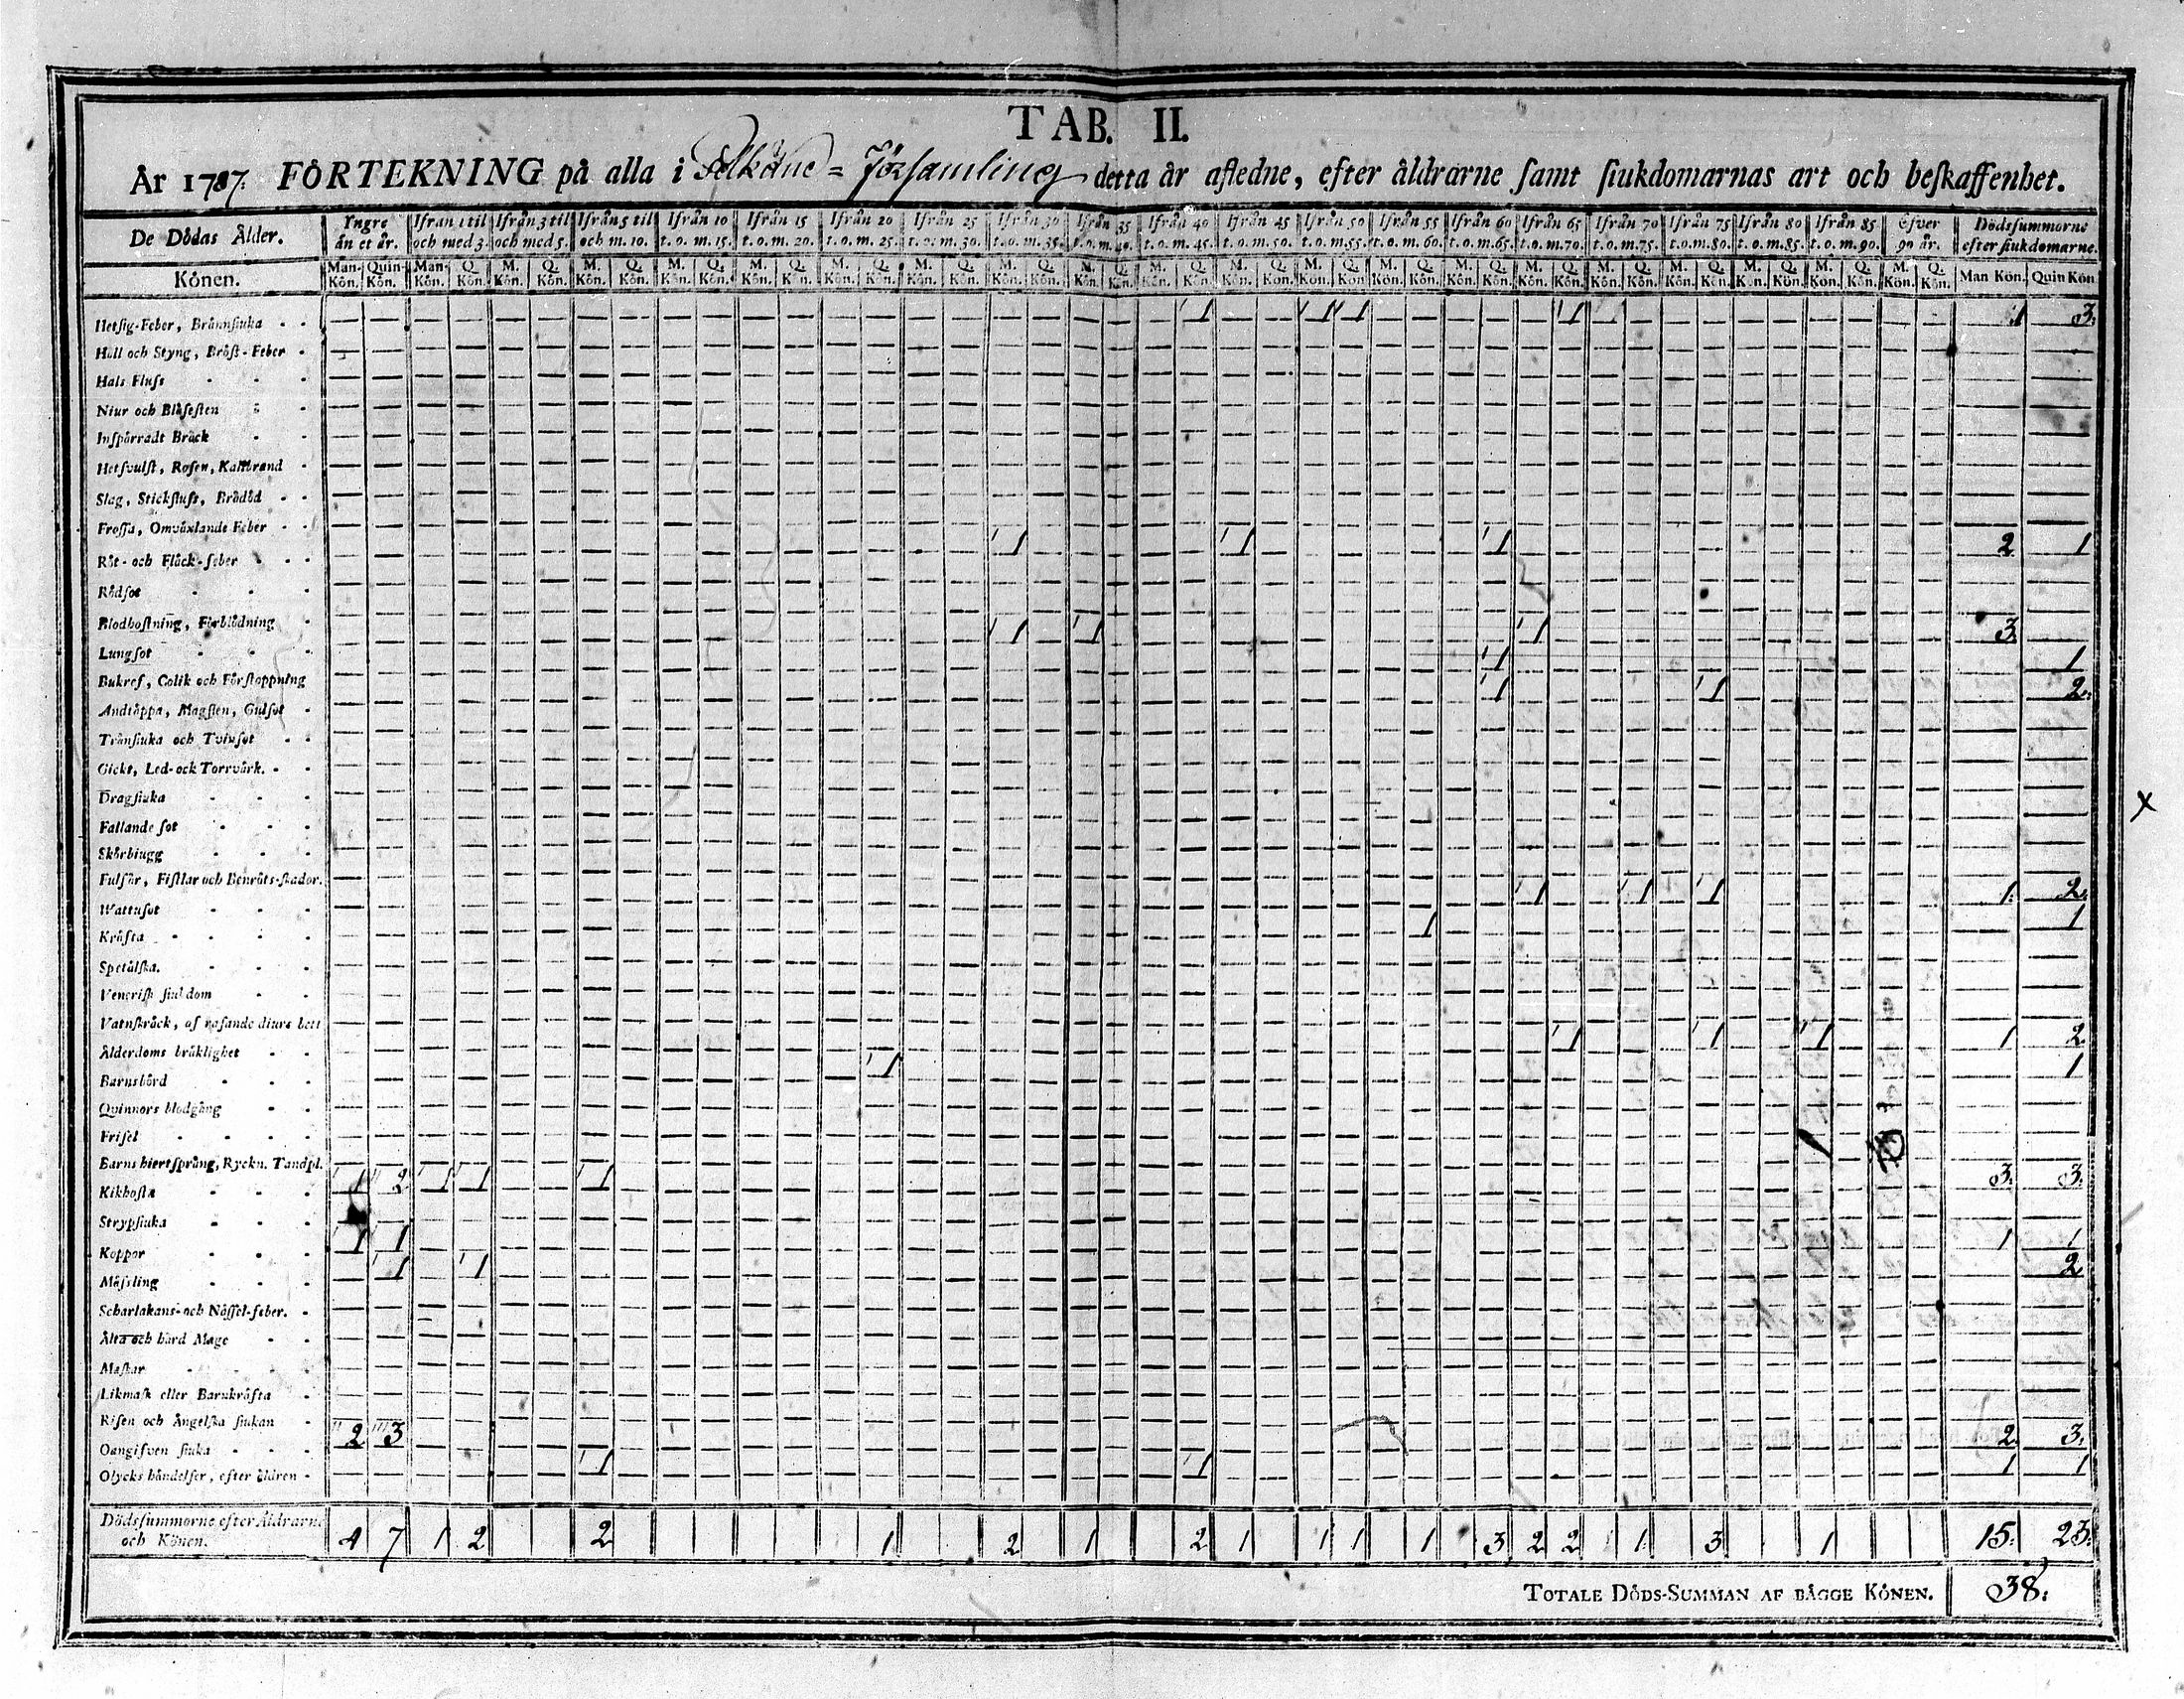 TAB. II.
År 1787. FÖRTEKNING på alla i Församling detta år afledne, efter åldrarne samt siukdomarnas art och beskaffenhet.
De Dödas Ålder. Yngre än et år. Ifrån 1 til och med 3. Ifrån 3 til och med 5. Ifrån 5 til och m. 10. Ifrån 10 t. o. m. 15. Ifrån 15 t. o. m. 20. Ifrån 20 t. o. m. 25. Ifrån 25 t. o. m. 30. Ifrån 30 t. o. m. 35. Ifrån 35 t. o. m. 40. Ifrån 40 t. o. m. 45. Ifrån 45 t. o. m. 50. Ifrån 50 t. o. m. 55. Ifrån 55 t. o. m. 60. Ifrån 60 t. o. m. 65. Ifrån 65 t. o. m. 70. Ifrån 70 t. o. m. 75. Ifrån 75 t. o. m. 80. Ifrån 80 t. o. m. 85. Ifrån 85 t. o. m. 90. Öfver 90 år. Dödssummorne efter siukdomarne.
Könen. Man-Kön. Quin-Kön. Man-Kön. Q. Kön. M. Kön. Q. Kön. M. Kön. Q. Kön. M. Kön. Q. Kön. M. Kön. Q. Kön. M. Kön. Q. Kön. M. Kön. Q. Kön. M. Kön. Q. Kön. M. Kön. Q. Kön. M. Kön. Q. Kön. M. Kön. Q. Kön. M. Kön. Q. Kön. M. Kön. Q. Kön. M. Kön. Q. Kön. M. Kön. Q. Kön. M. Kön. Q. Kön. M. Kön. Q. Kön. M. Kön. Q. Kön. M. Kön. Q. Kön. M. Kön. Q. Kön. Man Kön. Quin Kön
Hetsig-Feber, Brännsiuka 1 1 1 1 1 3.
Håll och Styng, Bröst-Feber
Hals Fluss
Niur och Blåsesten
Inspärradt Bråck
Hetsvulst, Rosen, Kallbrand
Slag, Stickfluss, Brådöd
Frossa, Omväxlande Feber
Röt- och Fläck-feber 1 1 1 2 1
Rödsot
Blodhostning, Förblödning
Lungsot 1 1 1 3.
Bukref, Colik och Förstoppning 1 1
Andtäppa, Magsten, Gulsot 1 1 2.
Trånsiuka och Tvinsot
Gickt, Led-ock Torrvärk.
Dragsiuka
Fallande sot
Skörbiugg
Fulsår, Fistlar och Benröts-skador.
Wattusot 1 1 1 1. 2.
Kräfta 1 1
Spetälska.
Venerisk siukdom
Vatnskräck, af rasande diurs bett
Ålderdoms bräklighet 1 1 1 1 2.
Barnsbörd 1 1
Quinnors blodgång
Frisel
Barns hiertsprång, Ryckn. Tandpl.
Kikhosta 1 2 1 1 1 3. 3.
Strypsiuka
Koppor 1 1 1 1
Mässling 1 1 2
Scharlakans- och Nässel-feber.
Älta och hård Mage
Maskar
Likmask eller Barnkräfta
Risen och Ångelska siukan
Oangifven siuka 2 3 2. 3.
Olycks händelser, efter åldren 1 1 1 1
Dödssummorne efter Åldrarne och Könen. 4 7 1 2 2 1 2 1 2 1 1 1 1 3 2 2 1. 3 1 15. 23.
TOTALE DÖDS-SUMMAN AF BÄGGE KÖNEN. 38.
x